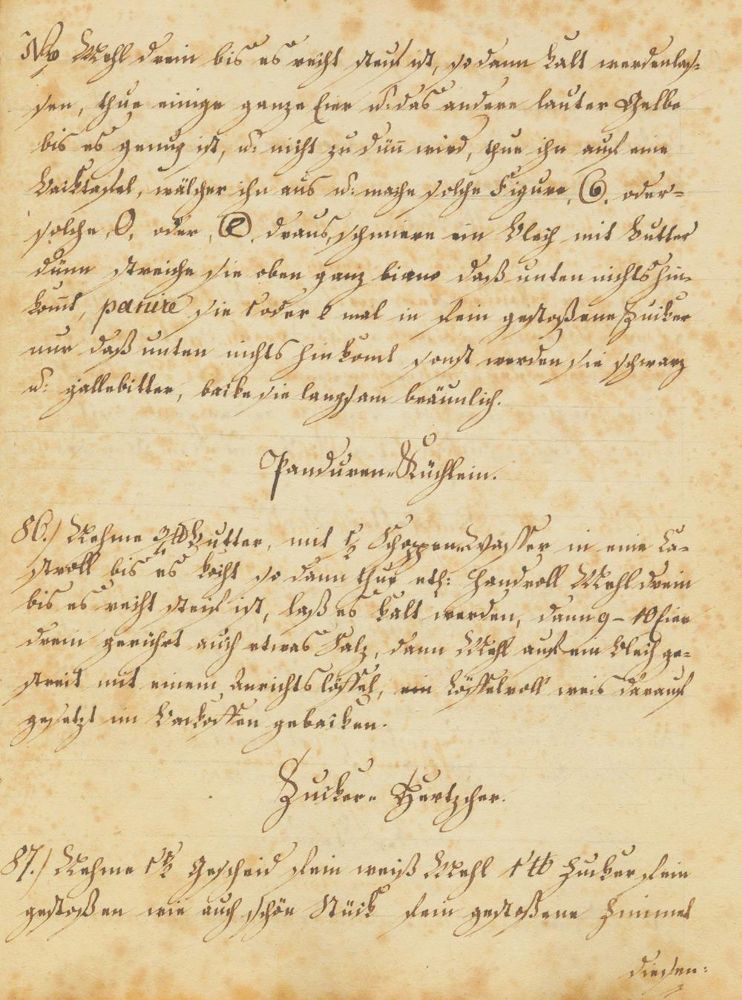 Mehl drein bis es recht steif ist, so dann kalt werdenlas=
sen, thue einige ganze Eier u: das andere lauter Gelbe
bis es genug ist, u: nicht zu dün wird, thue ihn auf eine
Backtafel, wälcher ihn aus u: mache solche Figure, oder=
solche, O, oder, draus, schmiere ein Blech mit Butter
dünn streiche sie oben ganz daß unten nichts hin=
komt, panire sie 1 oder 2 mal in fein gestoßene Zucker
nur daß unten nichts hinkomt sonst werden sie schwarz
u: gallebitter, backe sie langsam bräunlich.
Panduren=Küchlein.
86.) Nehme Butter, mit ½ Schoppen Wasser in eine Ca=
stroll bis es kocht so dann thue etl: Handvoll Mehl drein
bis es recht steif ist, laß es kalt werden, dann 9 – 10 Eier
drein gerührt auch etwas Salz, dann Mehl auf ein Blech ge=
streit mit einem Anrichtslöffel, ein Löffelvoll weis darauf
gesetzt im Backoffen gebacken.
Zucker= Hertzcher.
87.) Nehme 1½ Gescheid fein weiß Mehl 1 ℔ Zucker fein
gestoßen wie auch schön Stück fein gestoßene Zimmet
diesen: